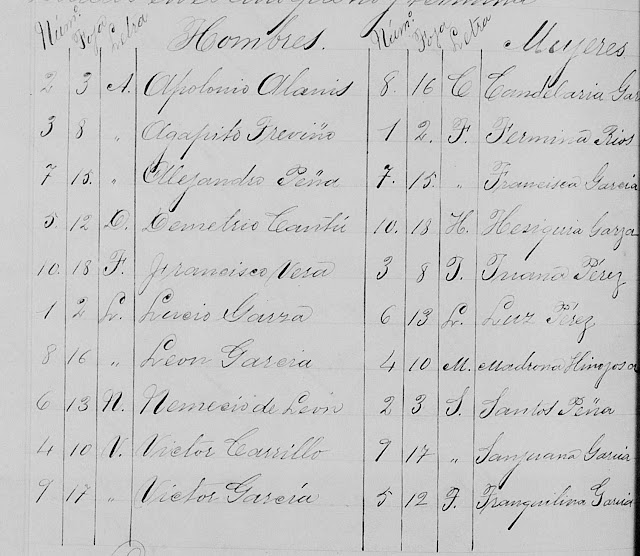 Núm.º Foja Letra Hombres. Núm.º Foja Letra Mujeres
2 3 A. Apolonio Alanis 8. 16 C Candelaria Gar
3 8 " Agapito Treviño 1 2. F. Fermina Rios
7 15. " Alejandro Peña 7. 15. " Francisca Garcia
5 12 D. Demetrio Cantú 10. 18 H. Hesiquia Garza
10. 18 F. Francisco Vera 3 8 J. Juana Pérez
1 2 L. Lucio Garza 6 13 L. Luz Pérez
8 16 " Leon Garcia 4 10 M. Madrona Hinojosa
6 13 N. Nemecio de León 2 3 S. Santos Peña
4 10 V. Victor Carrillo 9 17 " Sanjuana Garcia
9 17 " Victor García 5 12 T. Tranquilina Garcia